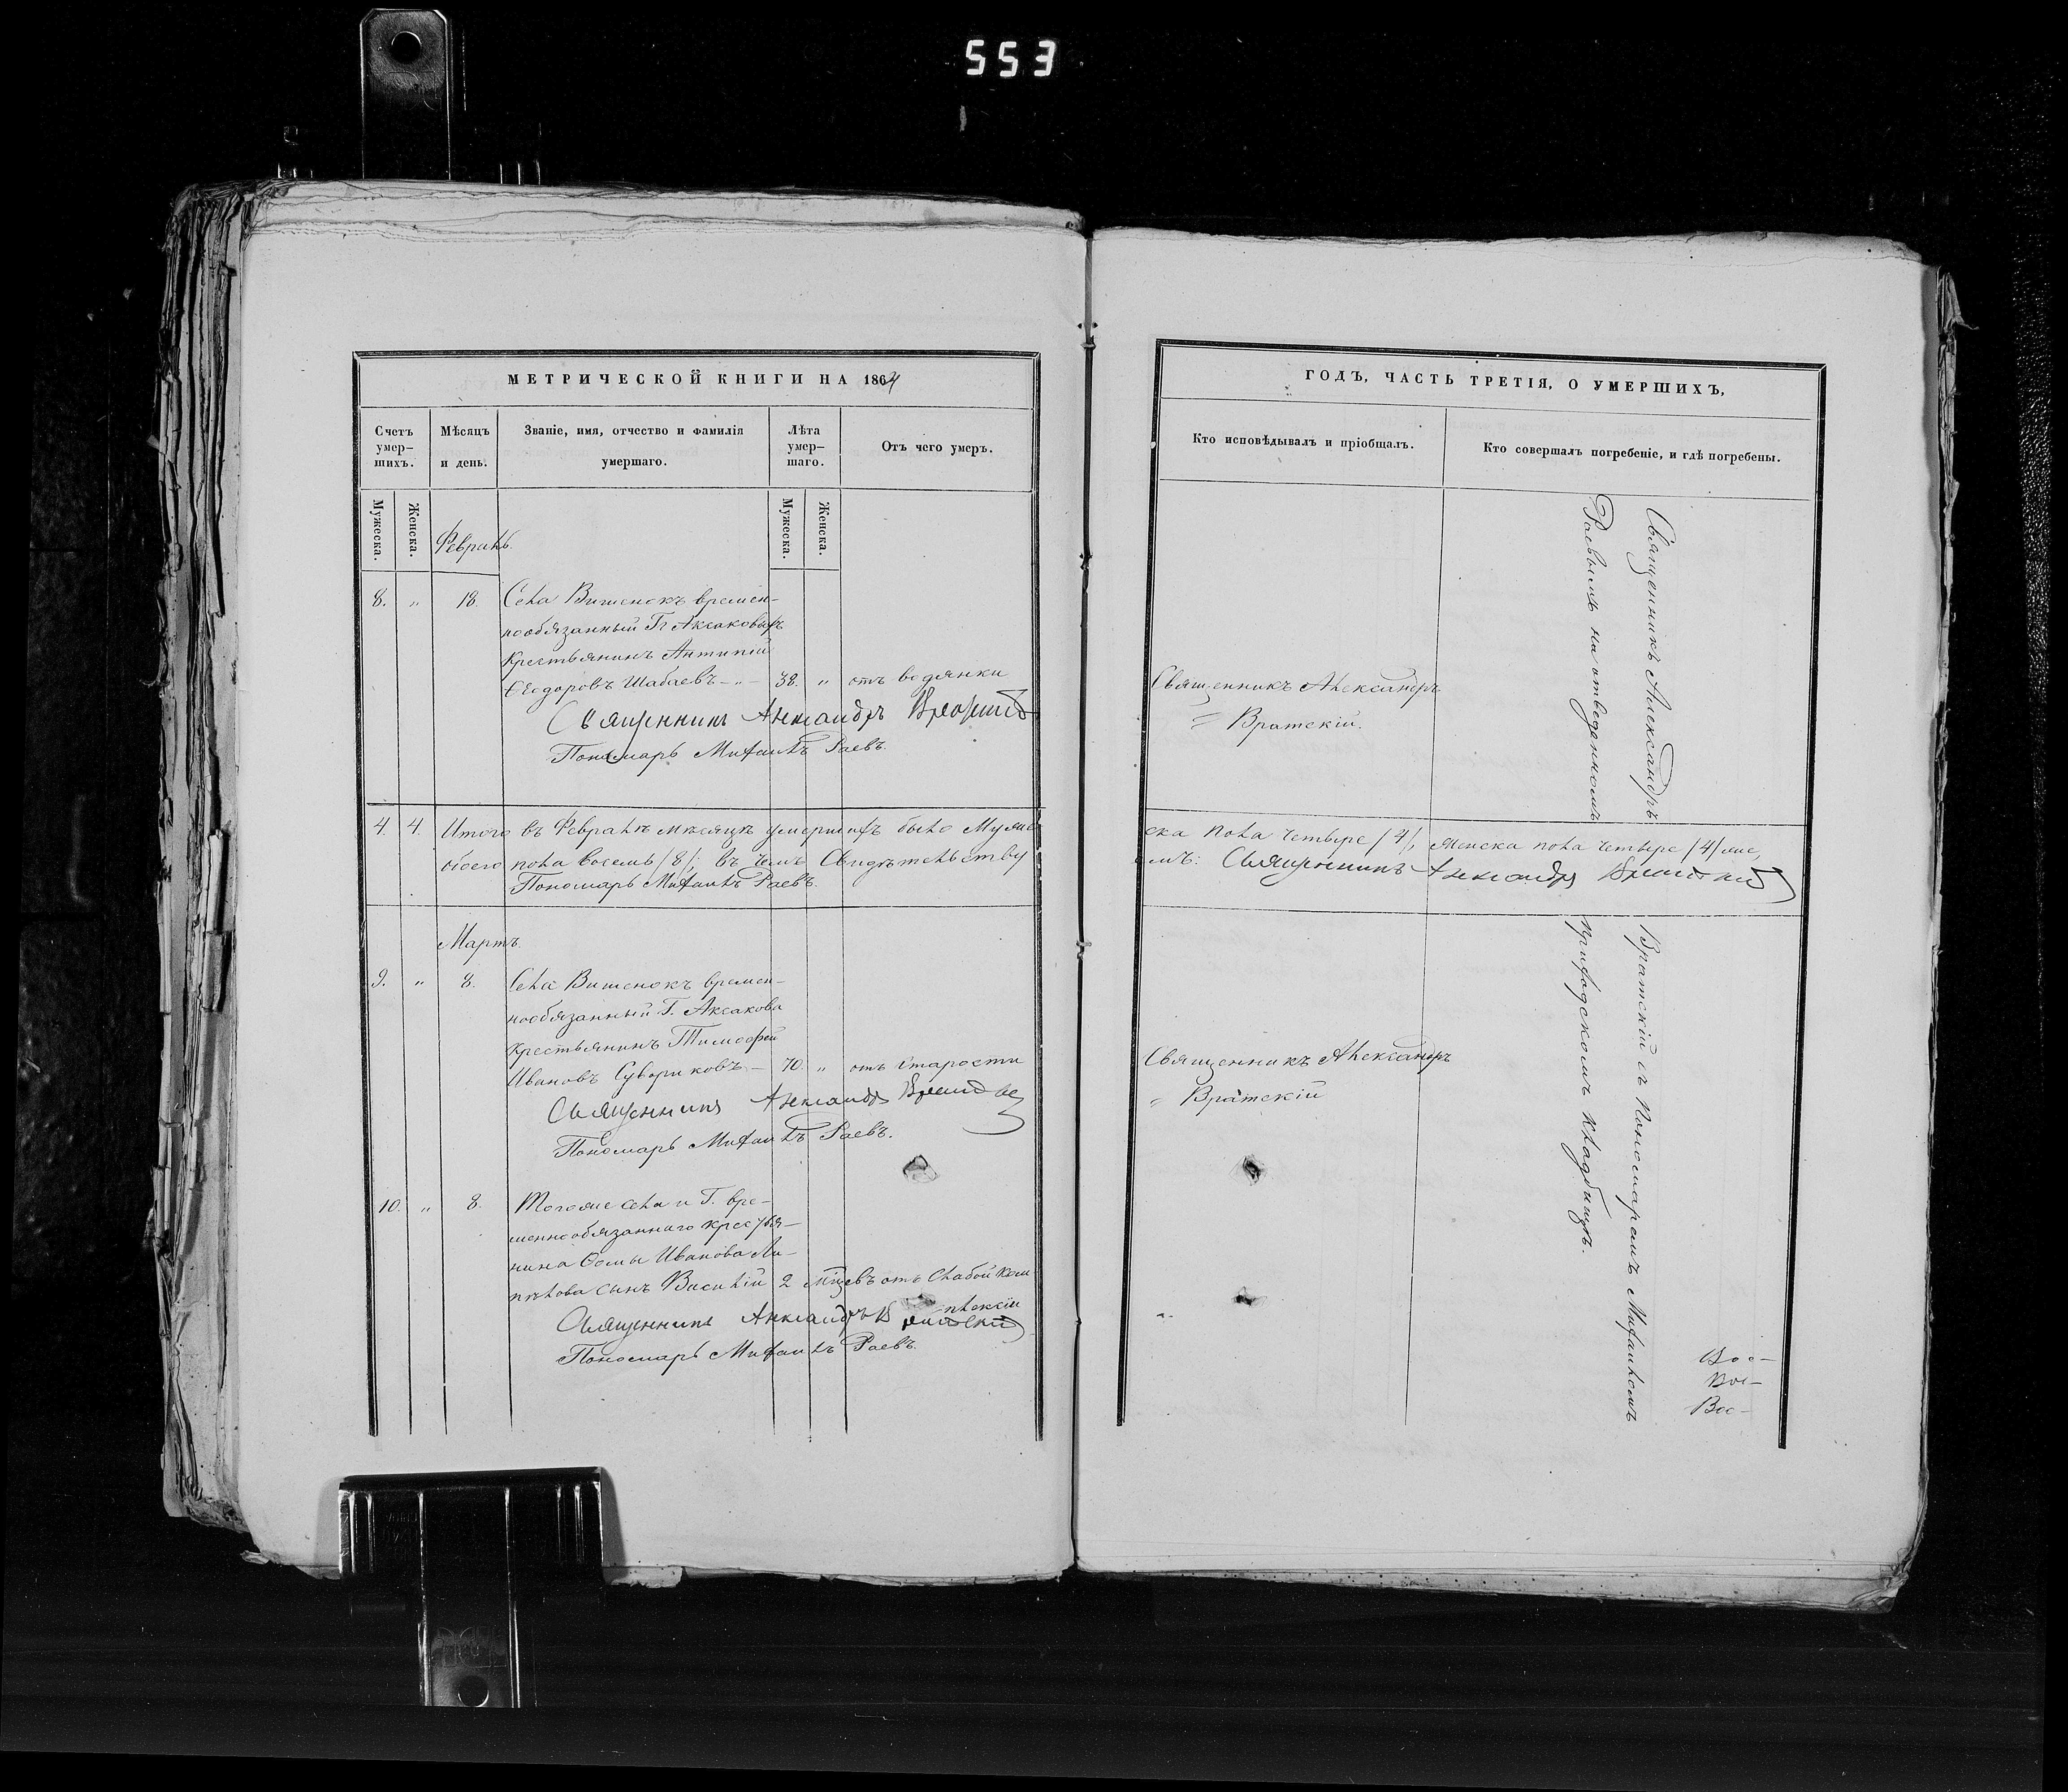 553
МЕТРИЧЕСКОЙ КНИГИ НА 1864
Счетъ умер-шихъ.
Мѣсяцъ и день.
Званіе, имя, отчество и фамилія умершаго.
Лѣта умер-шаго.
Отъ чего умеръ.
Мужеска.
Женска.
Мужеска.
Женска.
Февраль.
8. „ 18. Села Вишенокъ времен-
нообязанный Гг Аксаковыхъ
Крестьянинъ Антипій
Ѳеодоровъ Шабаевъ - „ - 38. „ отъ водянки
Священникъ Александръ Братскій
Пономарь Михаилъ Раевъ.
4. 4. Итого въ Февралѣ мѣсяцѣ умершихъ было Муже
обоего пола восемь /8/; въ чемъ Свидѣтельству
Пономарь Михаилъ Раевъ.
Мартъ.
9. „ 8. Села Вишенокъ времен-
нообязанный Г. Аксакова
Крестьянинъ Тимофей
Ивановъ Сувориковъ - 70. „ отъ старости
Священникъ Александръ Братскій
Пономарь Михаилъ Раевъ.
10. „ 8. Тогоже села и Г. вре-
меннообязаннаго крестья-
нина Ѳомы Иванова
сынъ Василій 2 мѣсевъ отъ слабой ком-
плекціи
Священникъ Александръ Братскій
Пономарь Михаилъ Раевъ.
ГОДЪ, ЧАСТЬ ТРЕТІЯ, О УМЕРШИХЪ,
Кто исповѣдывалъ и пріобщалъ.
Кто совершалъ погребеніе, и гдѣ погребены.
Священникъ Александръ
Братскій.
ска пола четыре /4/, женска пола четыре /4/ же,
емъ: Священникъ Александръ Братскій
Священникъ Александръ
Братскій
Священникъ Александръ
Братскій съ Пономаремъ Михаиломъ
Раевымъ на отведенномъ
приходскомъ кладбищѣ.
Вос-
Вос-
Вос-